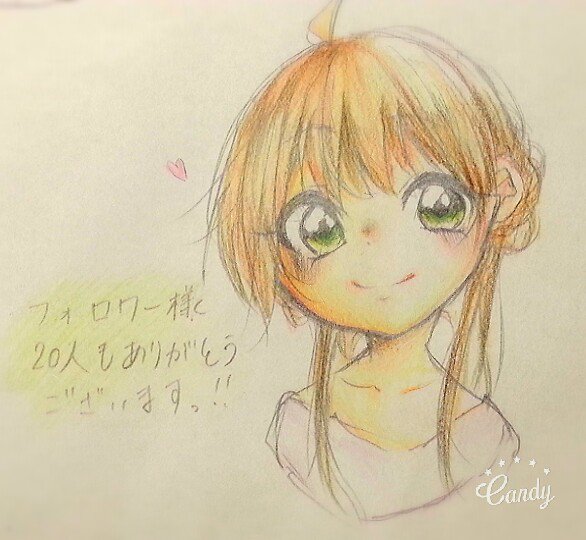 フォロワー様
20人もありがとう
ございますっ!!
Candy